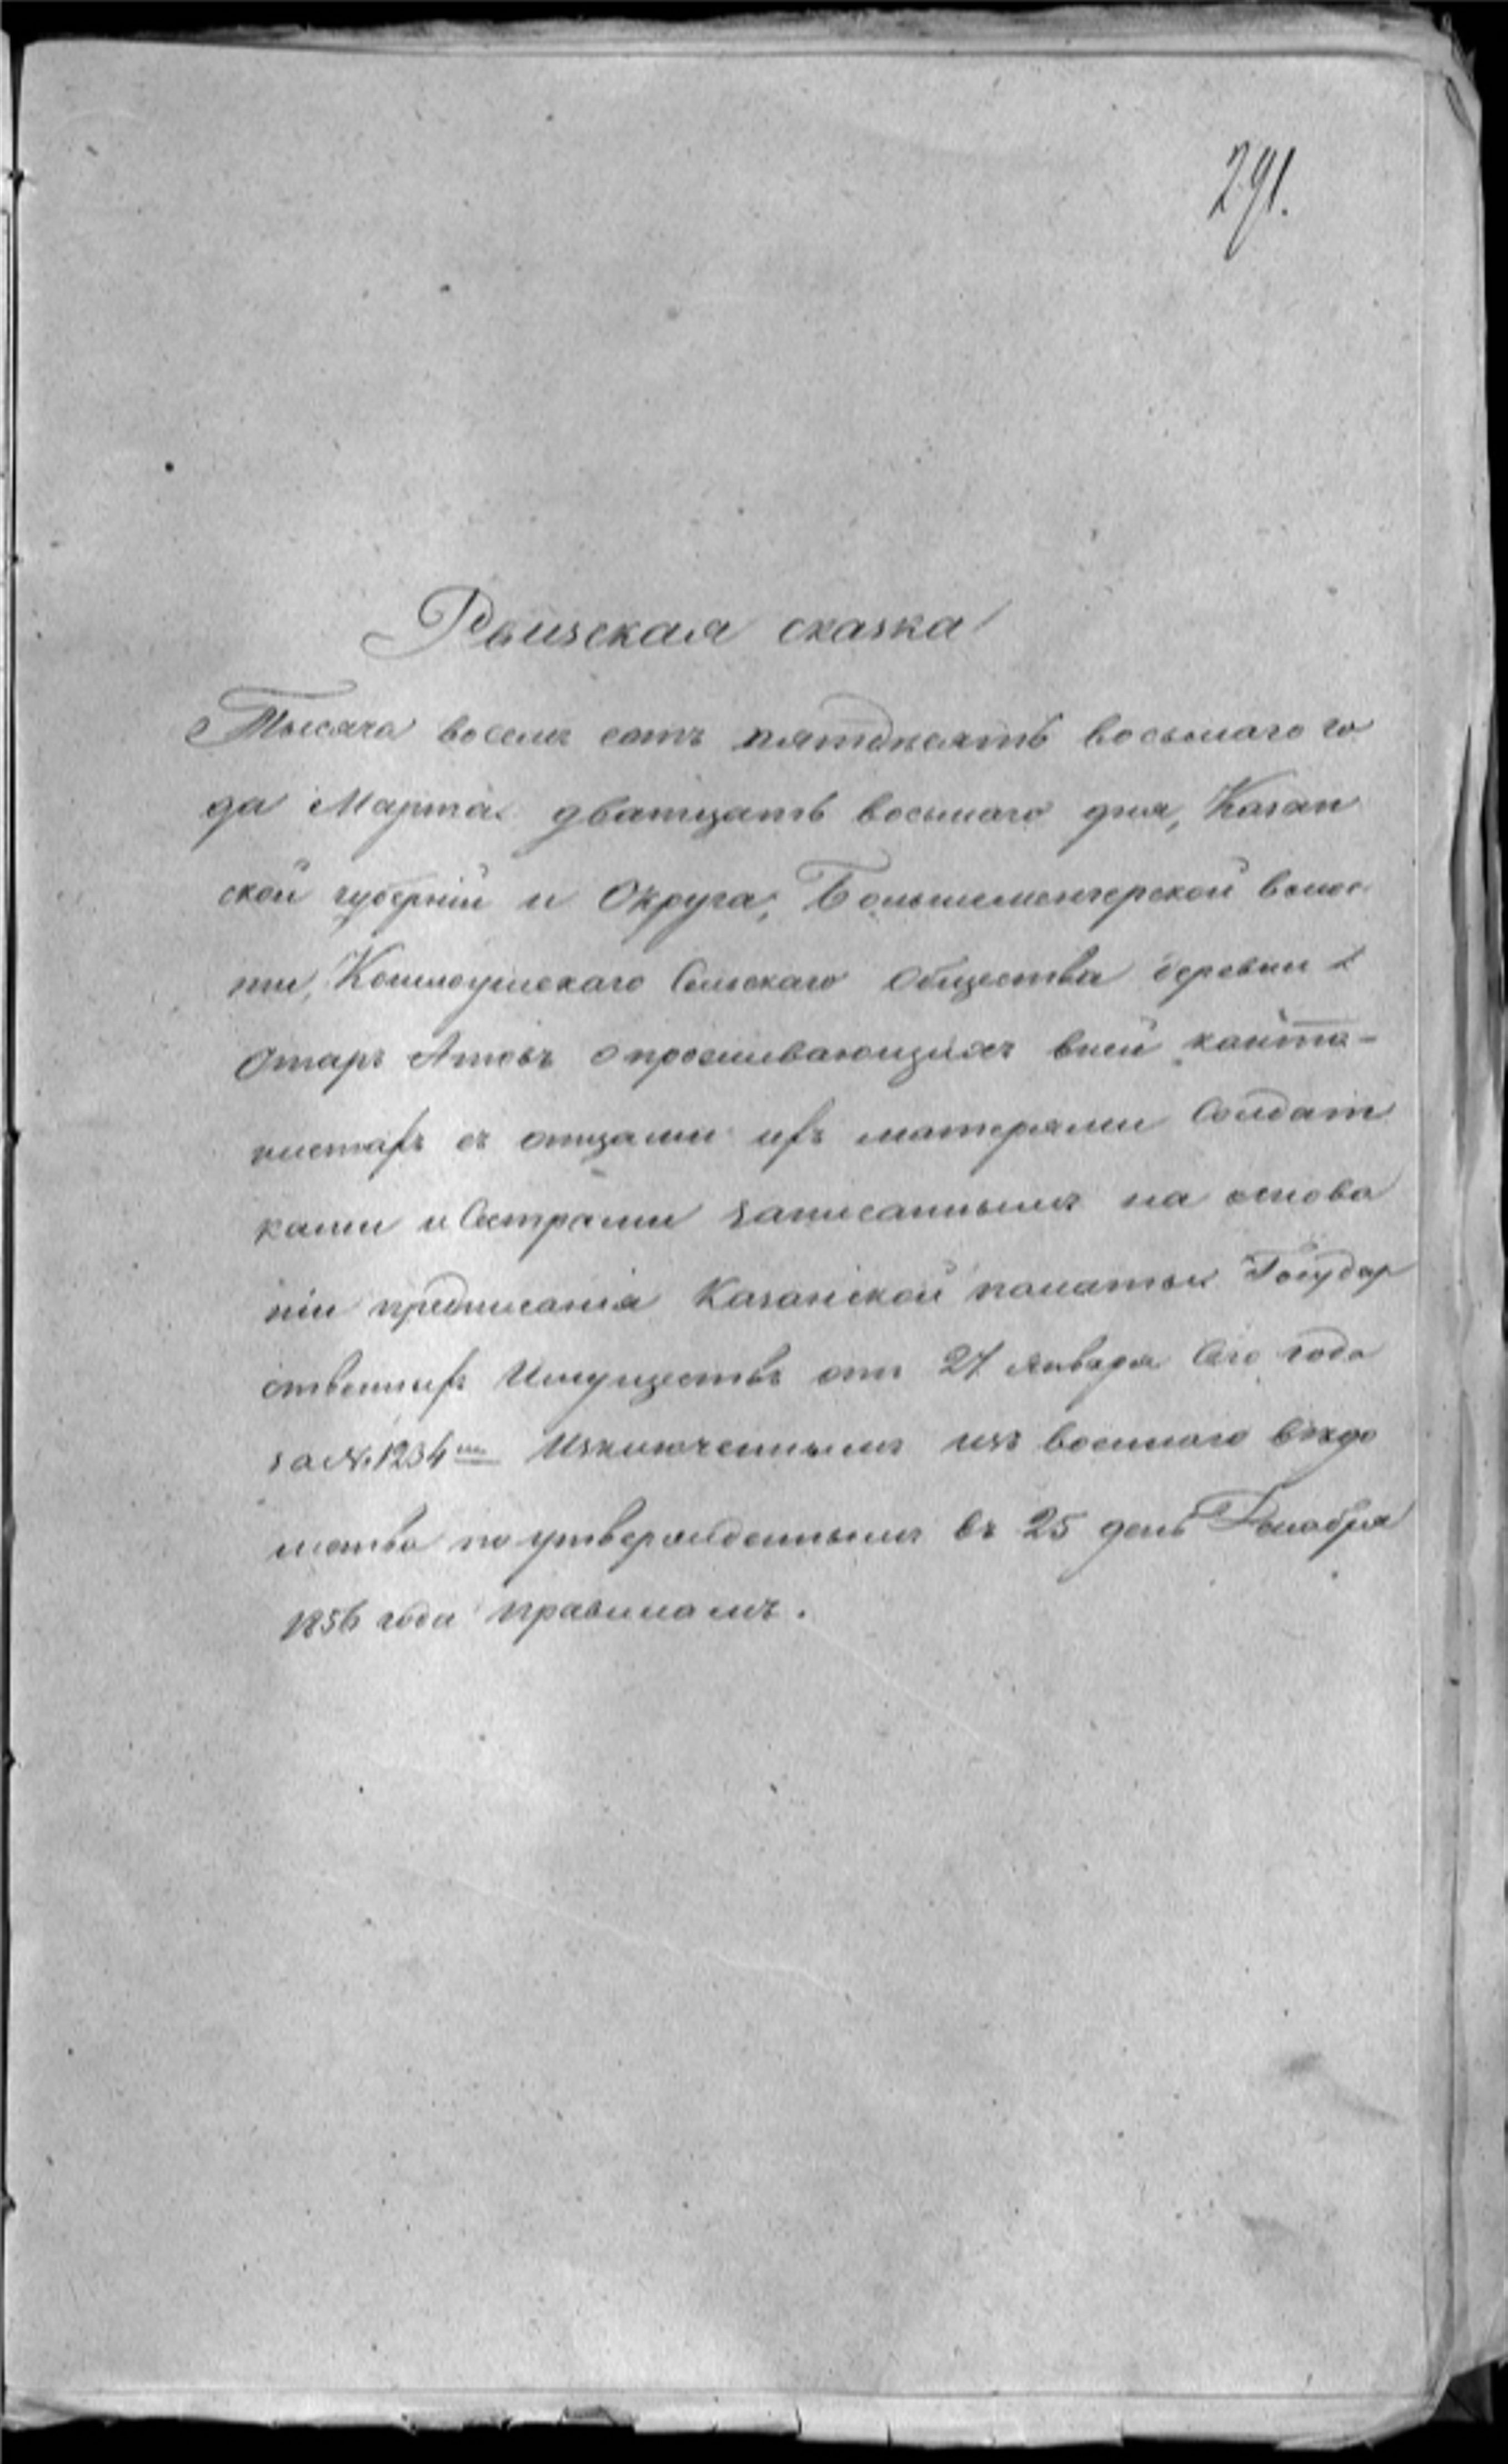 291.
Ревизская сказка
Тысяча восемь сотъ пятдесятъ восьмаго го
да Марта дватцать восьмаго дня, Казан
ской губернїи и Округа, Большеменгерской волос
ти, Сельскаго Общества деревни
Отаръ Атовъ о проживающихъ вней канто-
нистахъ съ отцами ихъ матерями Солдат
ками и Сестрами записаннымъ на основа
нїи предписанія Казанской палаты Государ
ственныхъ Имуществъ отъ 27 Января Сего года
за №1234 Изключеннымъ изъ военного вѣдо
мства по утвержденнымъ въ 25 день Декабря
1856 года правиламъ.